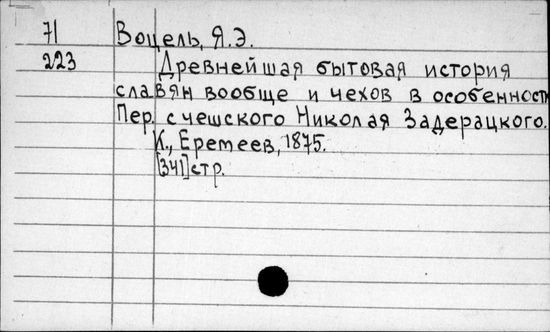 71 Воцель, Я.Э.
223 Древнейшая бытовая история
славян вообще и чехов в особенности
Пер. с чешского Николая Задерацкого.
К., Еремеев, 1875.
[341]стр.